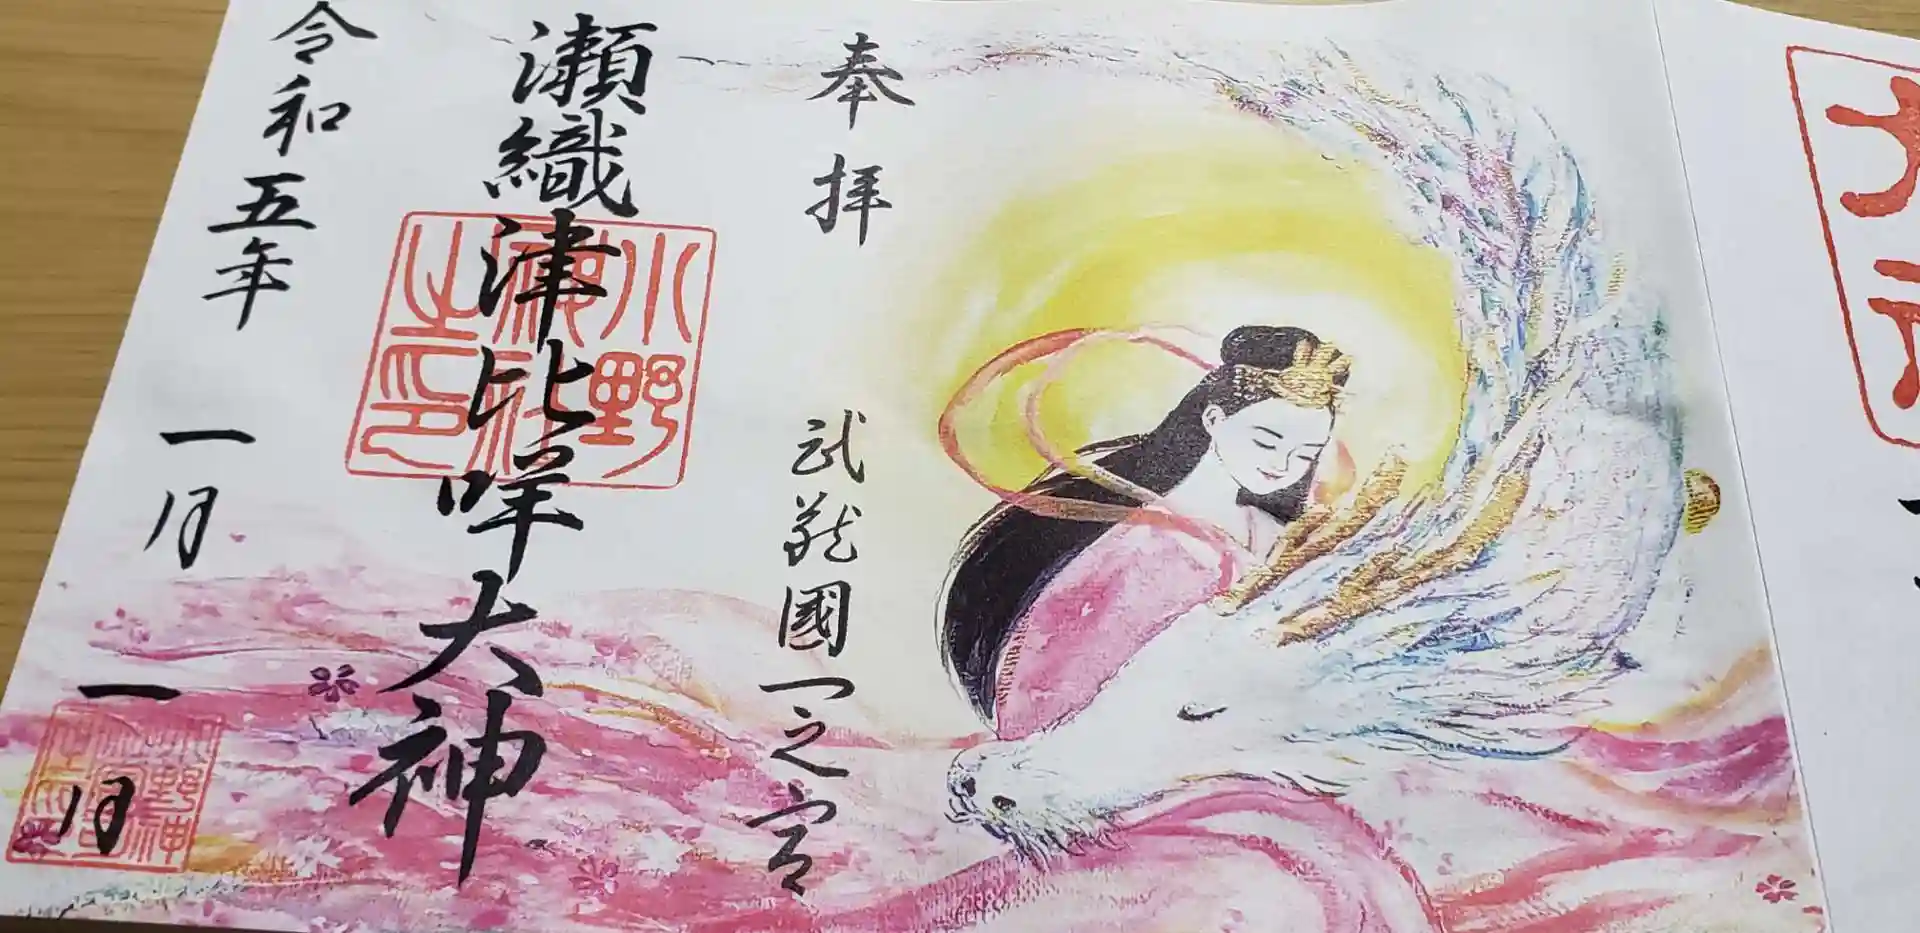 奉拝
武蔵國一之宮
瀬織津比咩大神
小野神社之印
令和五年一月一月